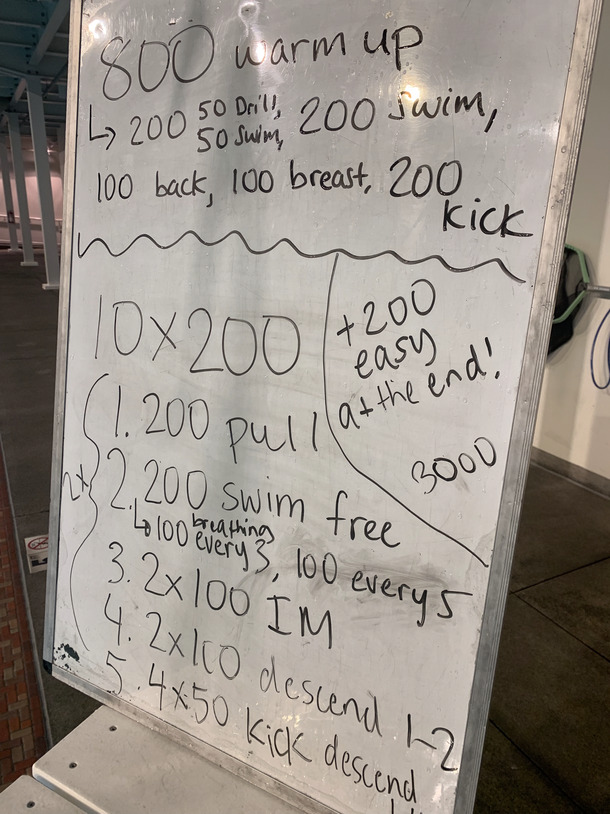 800 warm up
↳ 200 50 Drill, 50 Swim, 200 swim,
100 back, 100 breast, 200
kick
10x200
2x
1. 200 pull
2. 200 swim free
↳ 100 breathing every 3, 100 every 5
3. 2x100 IM
4. 2x100 descend 1-2
5. 4x50 kick descend
+200
easy
at the end!
3000